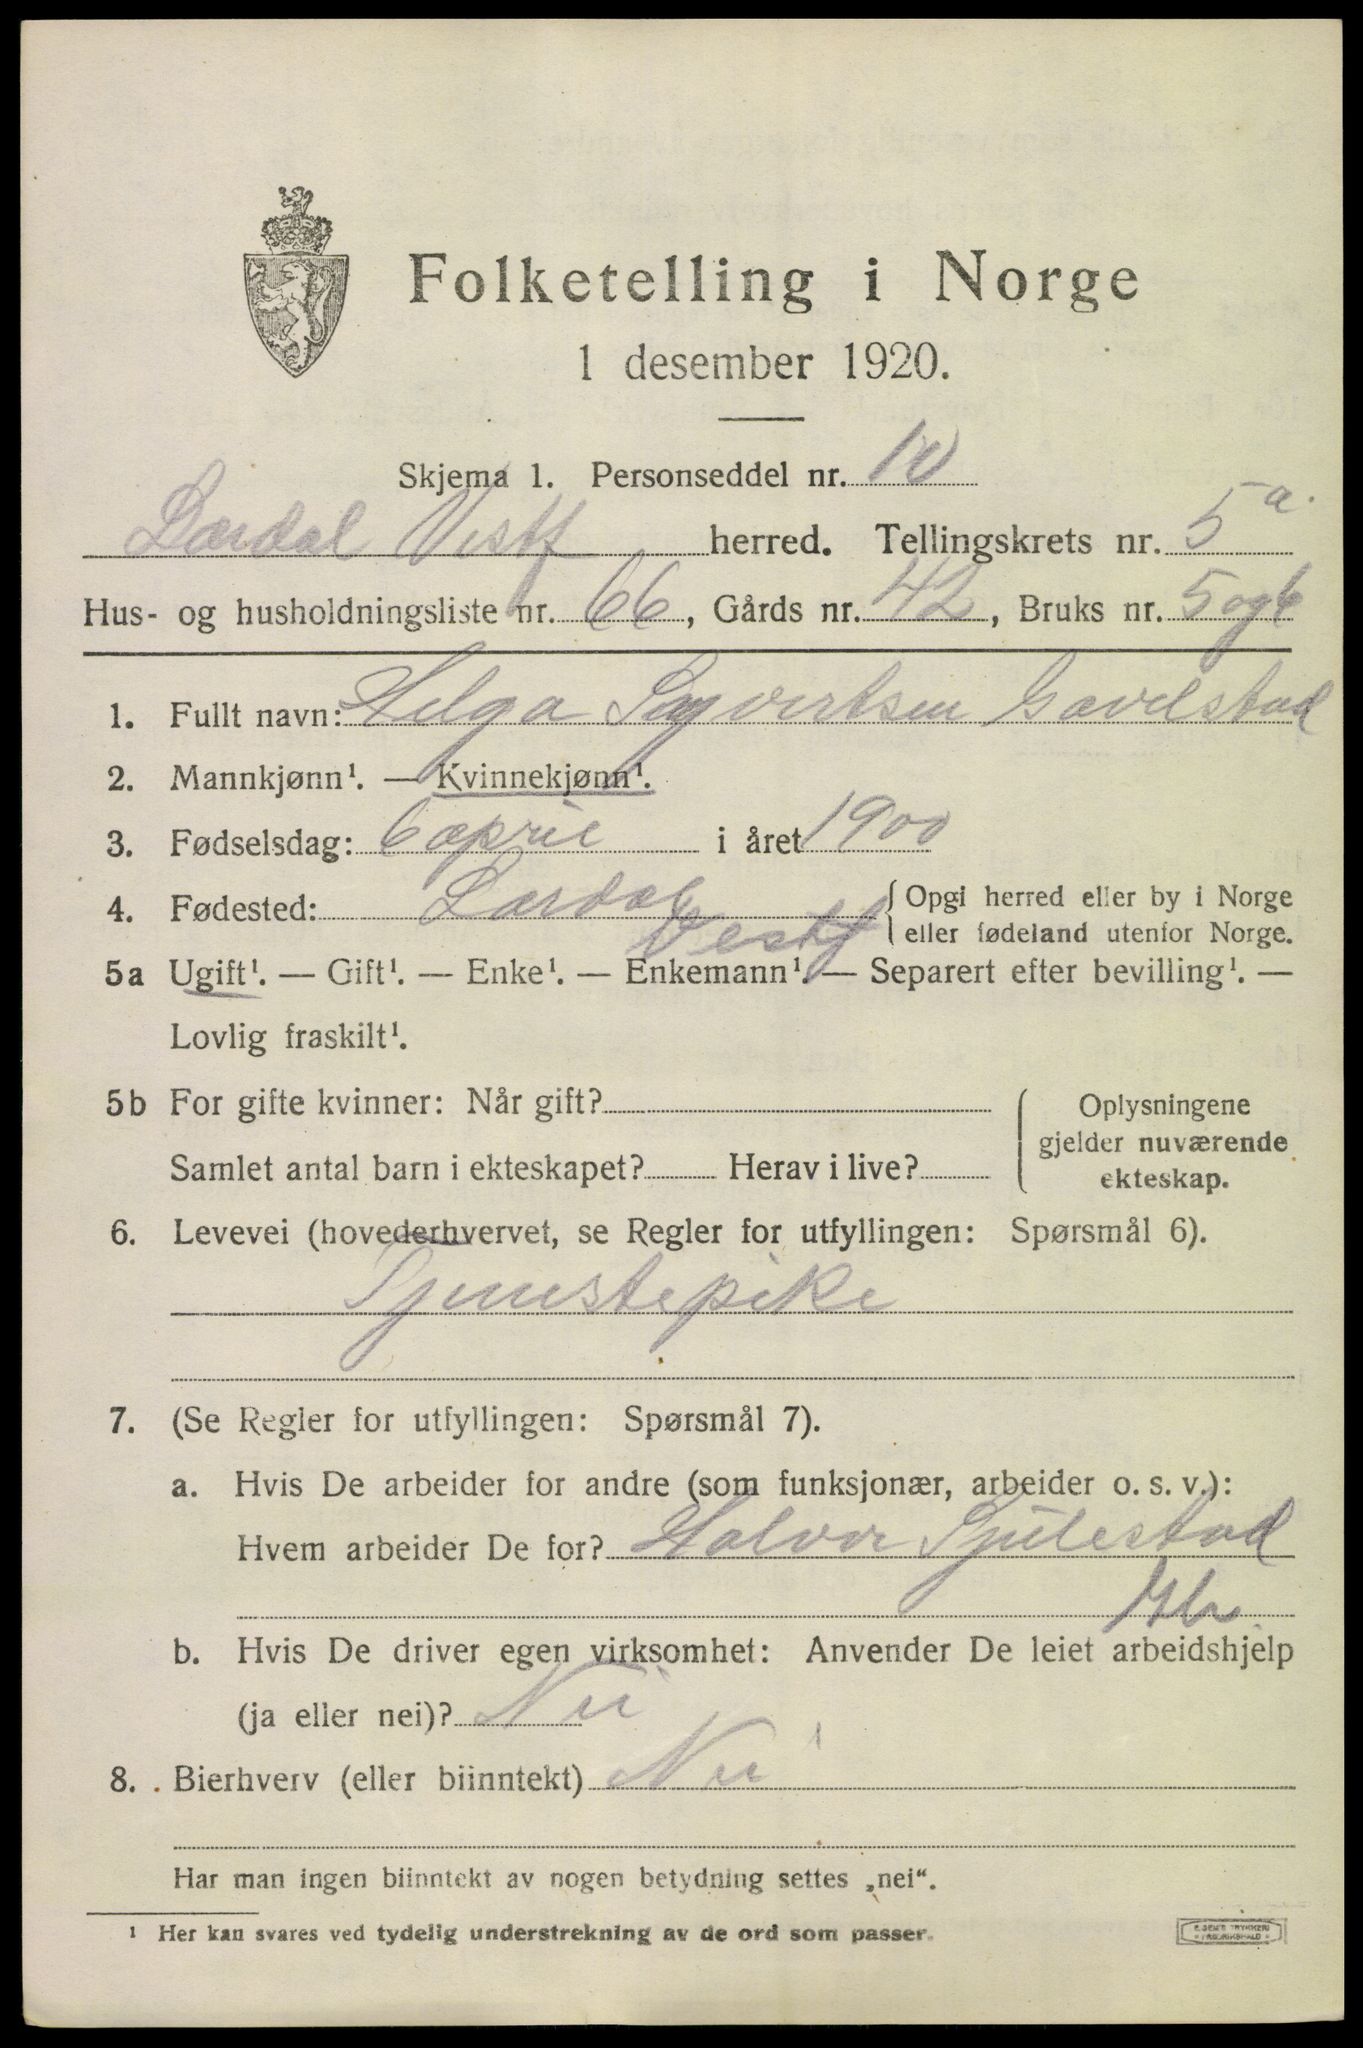 Folketelling i Norge
1 desember 1920.
Skjema 1. Personseddel nr. 10
Lardal Vestf herred. Tellingskrets nr. 5 a.
Hus- og husholdningsliste nr. 66, Gårds nr. 42, Bruks nr. 5 og 6
1. Fullt navn: Helga Syvertsen Gavelstad
2. Mannkjønn¹. — Kvinnekjønn¹.
3. Fødselsdag: 6 april i året 1900
4. Fødested: Lardal Vestf { Opgi herred eller by i Norge
eller fødeland utenfor Norge.
5a Ugift¹. — Gift¹. — Enke¹. — Enkemann¹. — Separert efter bevilling¹. —
Lovlig fraskilt¹.
5b For gifte kvinner: Når gift?
Samlet antal barn i ekteskapet? Herav i live?
Oplysningene
gjelder nuværende
ekteskap.
6. Levevei (hovederhvervet, se Regler for utfyllingen: Spørsmål 6).
Tjenestepike
7. (Se Regler for utfyllingen: Spørsmål 7).
a. Hvis De arbeider for andre (som funksjonær, arbeider o. s. v.):
Hvem arbeider De for? Halvor
b. Hvis De driver egen virksomhet: Anvender De leiet arbeidshjelp
(ja eller nei)? Nei
8. Bierhverv (eller biinntekt) Nei
Har man ingen biinntekt av nogen betydning settes „nei“.
¹ Her kan svares ved tydelig understrekning av de ord som passer.